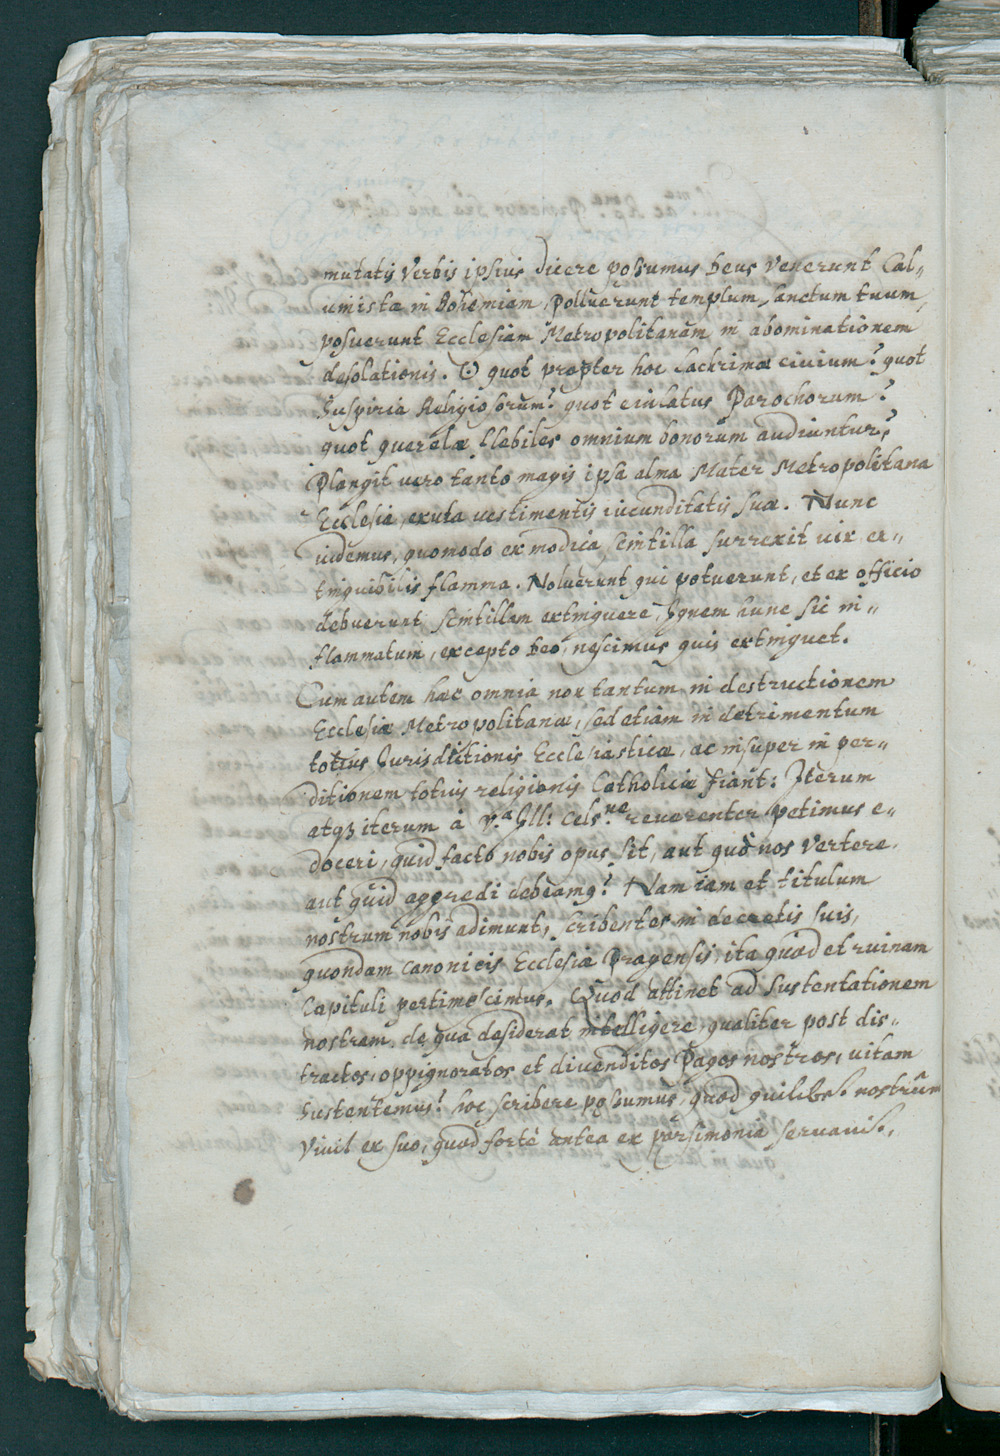 mutatis Verbis ipsius dicere possumus Deus Venerunt Cal„
uinistæ in Bohemiam, Polluerunt templum sanctum tuum,
posuerunt Ecclesiam Metropolitanam in abominationem
desolationis. O quot propter hoc lachrimæ ciuium? quot
Suspiria Religiosorum? quot eiulatus Parochorum?
quot querelæ flebiles omnium bonorum audiuntur?
Plangit vero tanto magis ipsa alma Mater Metropolitana
Ecclesia, exuta vestimentis iucunditatis suæ. Nunc
uidemus, quomodo ex modica scintilla surrexit uix ex„
tinguibilis flamma. Noluerunt qui potuerunt, et ex officio
debuerunt scintillam extinguere, Ignem hunc sic in„
flammatum, excepto Deo, nescimus quis extinguet.
Cum autem hæc omnia non tantum in destructionem
Ecclesiæ Metropolitanæ, sed etiam in detrimentum
totius Iurisdictionis Ecclesiasticæ, ac insuper in per„
ditionem totius religionis Catholicæ fiant: Iterum
atqȝ iterum à V.ª Ill: Cels.ne reuerenter petimus e„
doceri, quid facto nobis opus sit, aut quò nos Vertere,
aut quid aggredi debeamq? Nam iam et titulum
nostrum nobis adimunt, scribentes in decretis suis,
quondam Canonicis Ecclesiæ Pragensis, ita quod et ruinam
Capituli pertimescimus. Quod attinet ad Sustentationem
nostram, de qua desiderat intelligere, qualiter post dis„
tractos, oppignoratos et diuenditos Pagos nostros, uitam
Sustentemus? hoc scribere possumus, quod quilibet nostrûm
Viuit ex suo, quod fortè antea ex parsimonia seruauit,